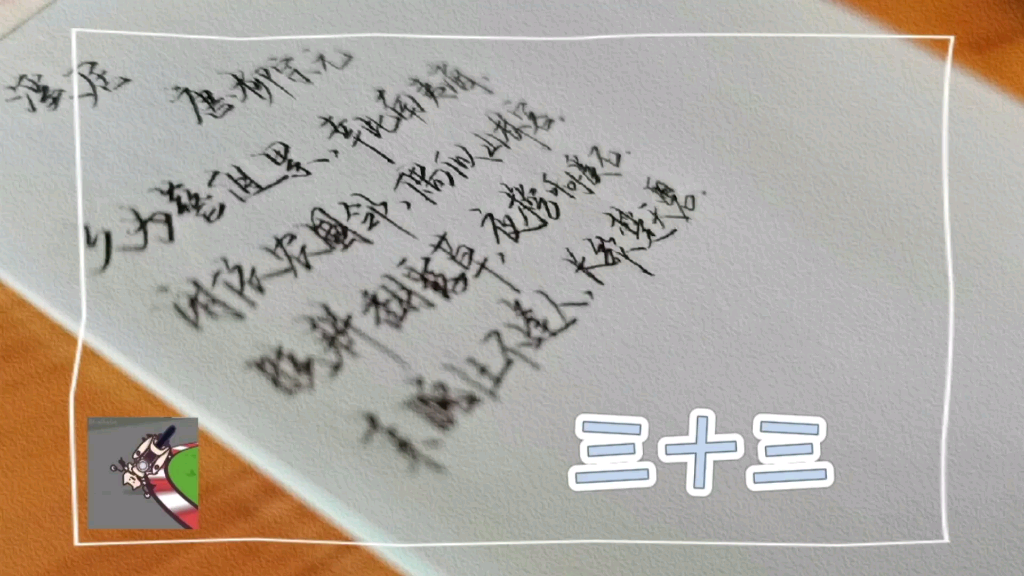 溪居
唐 柳宗元
久为簪组累,幸此南夷谪.
闲依农圃邻,偶似山林客.
晓耕翻露草,夜榜响溪石.
来往不逢人,长歌楚天碧.
三十三